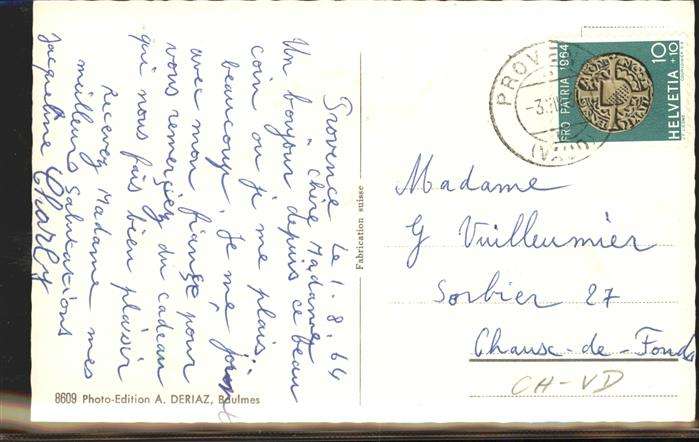 Provence le 1.8.64
Chère Madame
Un bonjour depuis ce beau
coin ou je me plais
beaucoup. Je me joins
avec mon fiancé pour
vous remerciez du cadeau
qui nous fais bien plaisir
Recevez Madame mes
meilleurs salutations
Jacqueline Charly
8609 Photo-Edition A. DERIAZ, Baulmes
Fabrication suisse
PROV
-3.
(VAUD)
PRO PATRIA 1964
10
+10
HELVETIA
Madame
G Vuilleumier
Sorbier 27
Chaux-de-Fonds
CH-VD